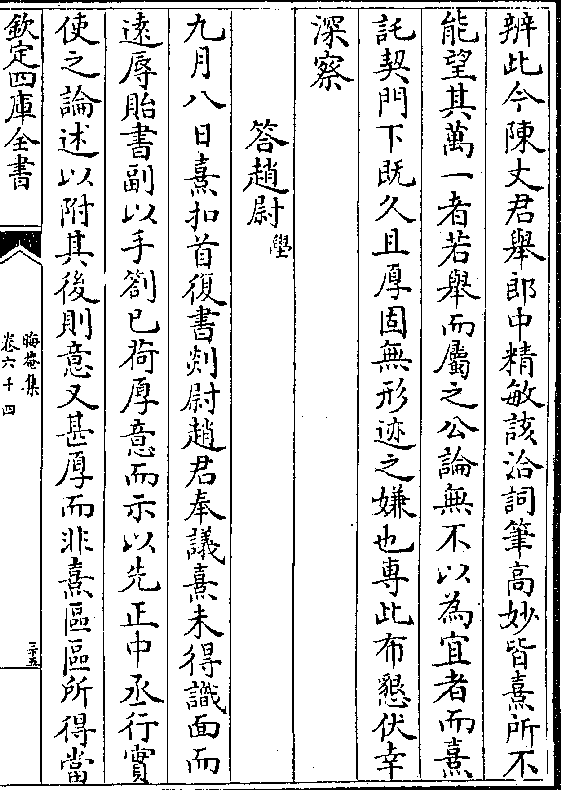 辨此今陳丈君舉郎中精敏該洽詞筆高妙皆熹所不
能望其萬一者若舉而屬之公論無不以為宜者而熹
託契門下既久且厚固無形迹之嫌也專此布懇伏幸
深察
答趙尉
九月八日熹扣首復書剡尉趙君奉議熹未得識面而
遠辱貽書副以手劄已荷厚意而示以先正中丞行實
使之論述以附其後則意又甚厚而非熹區區所得當
欽定四庫全書
晦菴集
卷六十四
三十五